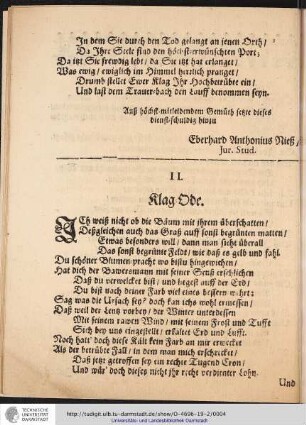 In dem Sie durch den Tod gelangt an jenen Orth/
Da Ihre Seele find den höchsterwünschten Port;
Da itzt Sie frewdig lebt / da Sie itzt hat erlanget/
Was ewig / ewiglich im Himmel herrlich pranget/
Drumb stellet Ewer Klag Ihr Hochbetrübte ein/
Und last dem Trauer-bach den Lauff benommen seyn.
Auß höchst-mitleidendem Gemüth setzte dieses
dienst-schuldig hinzu
Eberhard Anthonius Nieß/
Jur. Stud.
II.
Klag-Ode.
ICh weiß nicht ob die Bäum mit ihrem überschatten/
Deßgleichen auch das Graß auff sonst begrünten matten/
Etwas besonders will / dann man sicht überall
Das sonst begrünte Feldt / wie daß es gelb und fahl
Du schöner Blumen pracht wo bistu hingewichen/
Hat dich der Bawersmann mit seiner Senß erschlichen
Daß du verwelcket bist / und liegest auff der Erd/
Du bist noch deiner Farb viel eines bessern wehrt:
Sag was die Ursach sey? doch kan ichs wohl ermessen/
Daß weil der Lentz vorbey / der Winter unterdessen
Mit seinem rawen Wind / mit seinem Frost und Tufft
Sich bey uns eingestellt / erkaltet Erd und Lufft.
Noch hatt doch diese Kält kein Farb an mir erwecket
Als der betrübte Fall / in dem man mich erschrecket/
Daß jetzt getroffen sey ein rechte Tugend Cron/
Und wär doch dieses nicht ihr recht verdienter Lohn.
Und
TECHNISCHE
UNIVERSITÄT
DARMSTADT
http://tudigit.ulb.tu-darmstadt.de/show/D-4606-15-2/0004
Universitäts- und Landesbibliothek Darmstadt